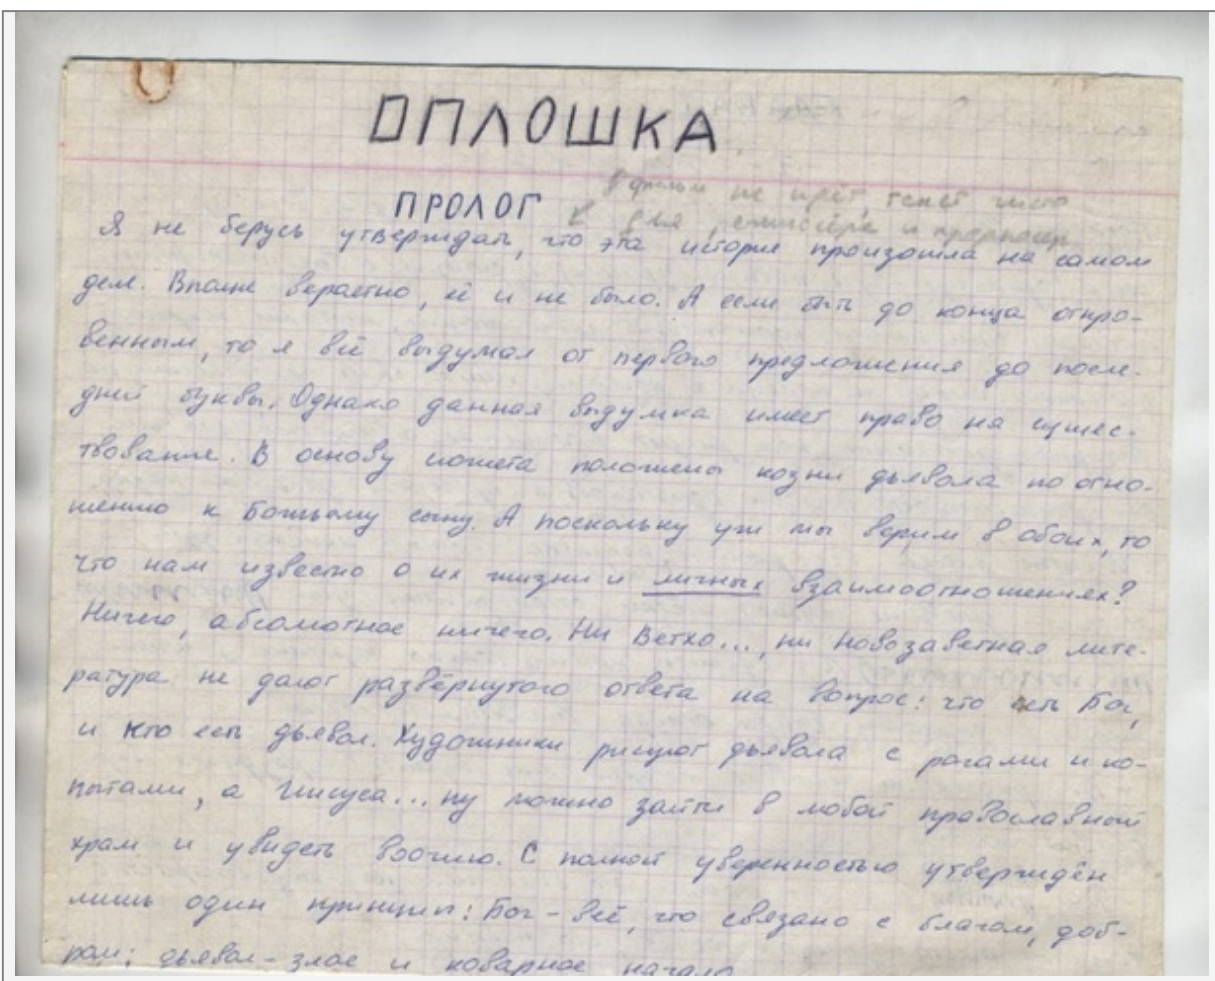 ОПЛОШКА
В фильм не идёт, текст чисто
ПРОЛОГ
для режиссёра и
Я не берусь утверждать, что эта история произошла на самом
деле. Вполне вероятно, её и не было. А если быть до конца откро-
венным, то я всё выдумал от первого предложения до после-
дней буквы. Однако данная выдумка имеет право на сущес-
твование. В основу сюжета положены козни дьявола по отно-
шению к Божьему сыну. А поскольку уж мы верим в обоих, то
что нам известно о их жизни и личных взаимоотношениях?
Ничего, абсолютное ничего. Ни Ветхо..., ни новозаветная лите-
ратура не дают развёрнутого ответа на вопрос: что есть Бог,
и кто есть дьявол. Художники рисуют дьявола с рогами и ко-
пытами, а Иисуса... ну можно зайти в любой православный
храм и увидеть воочию. С полной уверенностью утверждён
лишь один принцип: Бог - всё, что связано с благом, доб-
ром; дьявол - злое и коварное начало